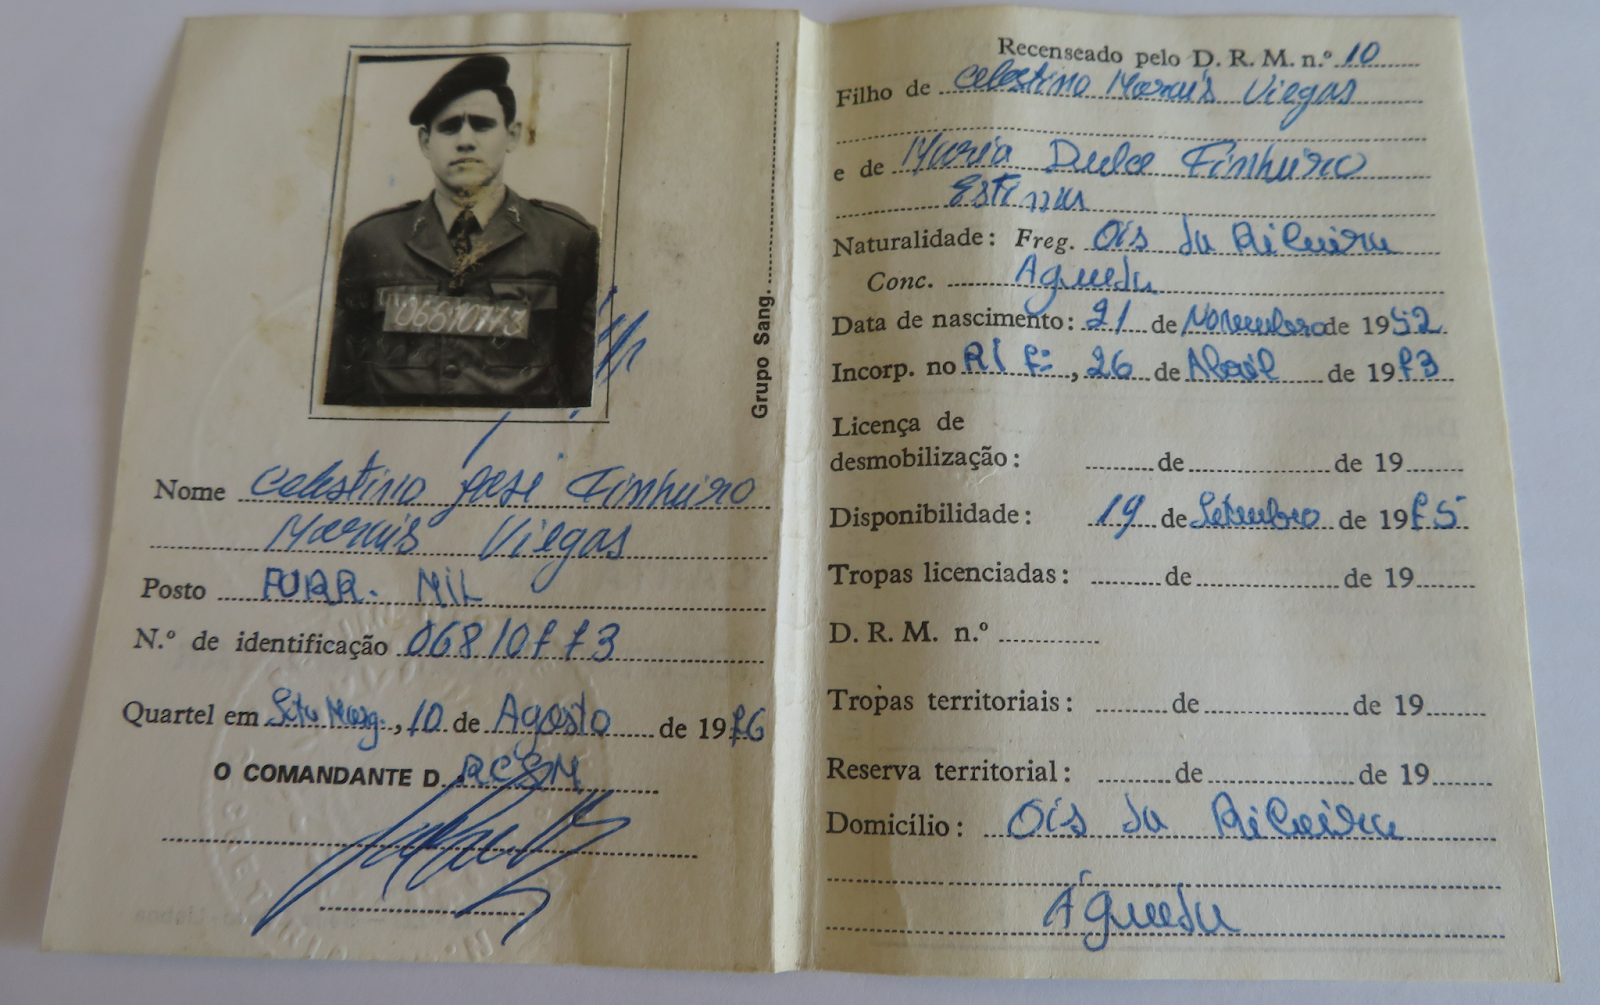 06810773
Grupo Sang.
Nome Celestino José Pinheiro
Morais Viegas
Posto FURR. MIL
N.º de identificação 06810773
Quartel em Setª Marg., 10 de Agosto de 1976
O COMANDANTE D.
Recenseado pelo D. R. M. n.º 10
Filho de Celestino Morais Viegas
e de Maria Dulce Pinheiro
Estimas
Naturalidade: Freg. Ois da Ribeira
Conc. Agueda
Data de nascimento: 21 de Novembro de 1952
Incorp. no RI 7, 26 de Abril de 1973
Licença de
desmobilização: de de 19
Disponibilidade: 19 de Setembro de 1975
Tropas licenciadas: de de 19
D. R. M. n.º
Tropas territoriais: de de 19
Reserva territorial: de de 19
Domicílio: Ois da Ribeira
Águeda